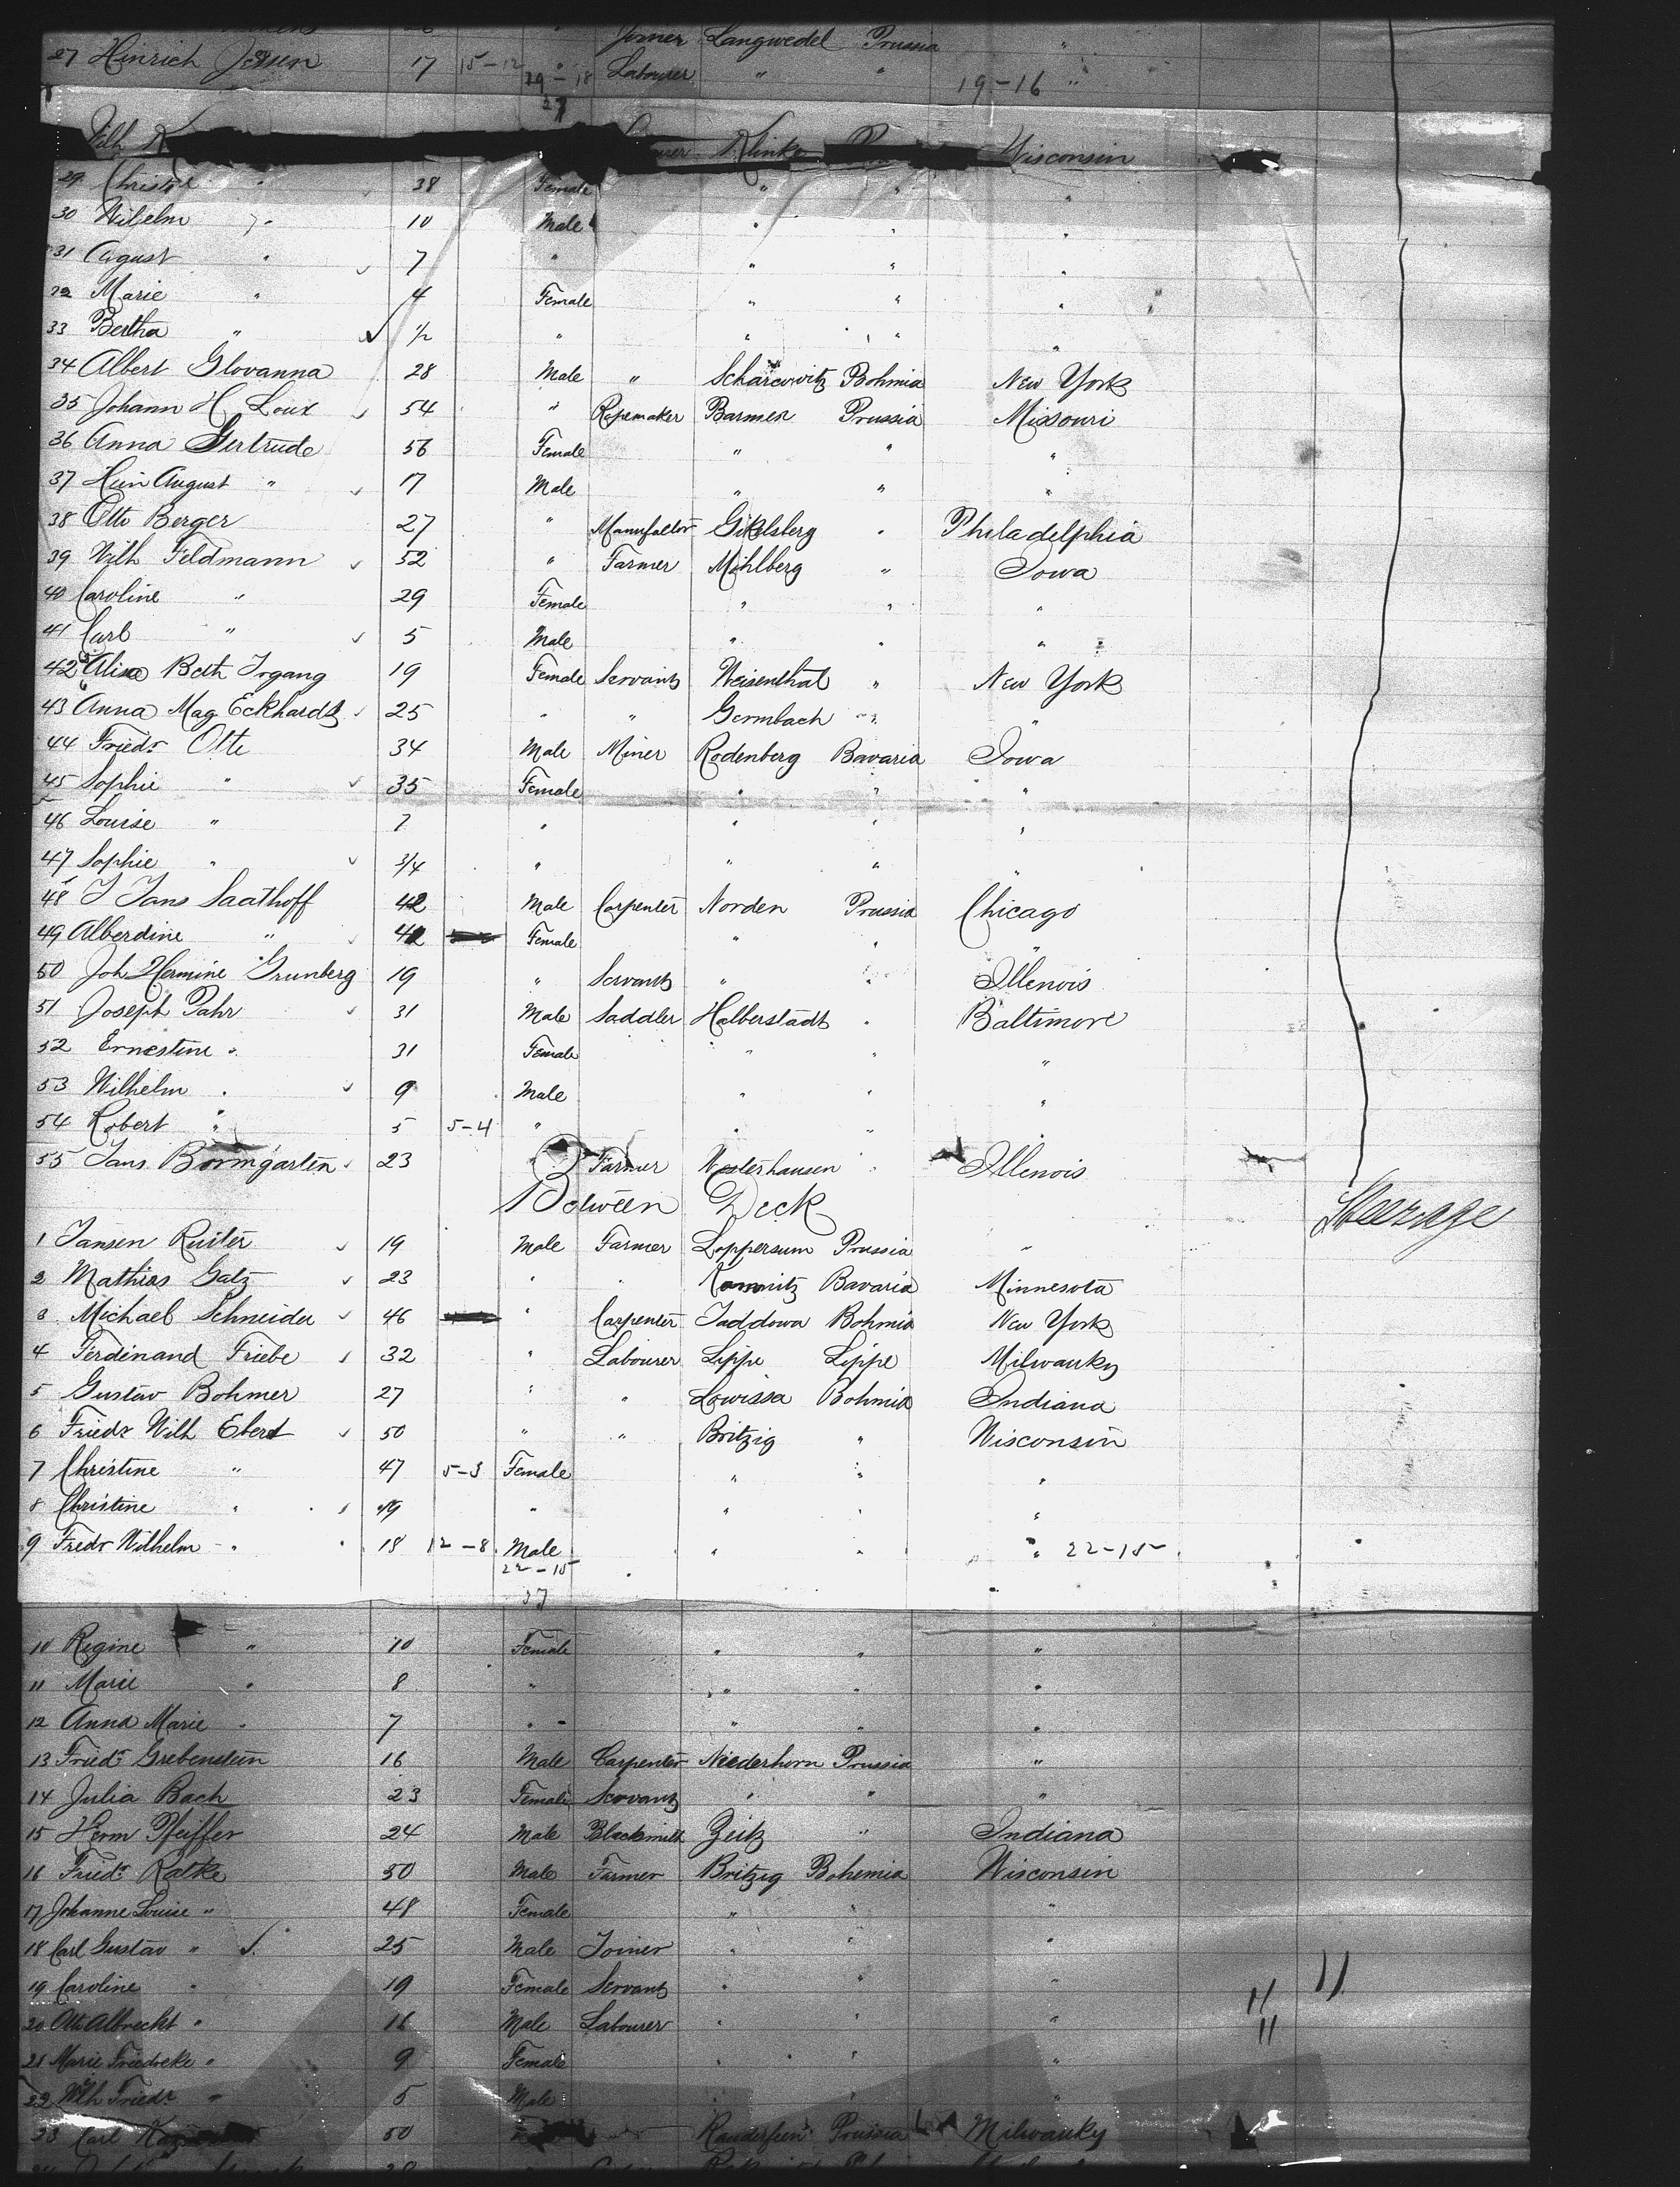 Joiner Langwedel Prussia "
27 Hinrich Jessen 17 15-12 " Labourer " " 19-16 "
29-18
27
Wilh Wisconsin
29 Christ " 38 Female " " "
30 Wilhelm " 10 Male " " "
31 August " 7 " " " "
32 Marie " 4 Female " " "
33 Bertha " 1/2 " " " "
34 Albert Glovanna 28 Male " Scharcowitz Bohmia New York
35 Johann H Loux 54 " Ropemaker Barmen Prussia Missouri
36 Anna Gertrude 56 Female " " "
37 Hein August " 17 Male " " "
38 Otto Berger 27 " Manufaltor Gikelsberg " Philadelphia
39 Wilh Feldmann 52 " Farmer Mihlberg " Iowa
40 Caroline " 29 Female " " "
41 Carl " 5 Male " " "
42 Alise Beth Irgang 19 Female Servant Weisenthal " New York
43 Anna Mag Eckhardt 25 " " Germbach " "
44 Friedr Otte 34 Male Miner Rodenberg Bavaria Iowa
45 Sophie " 35 Female " " "
46 Louise " 7 " " " "
47 Sophie " 3/4 " " " "
48 J Jans Saathoff 42 Male Carpenter Norden Prussia Chicago
49 Alberdine " 42 Female " " "
50 Joh Hermine Grunberg 19 " Servant " " Illenois
51 Joseph Pahr 31 Male Saddler Halberstadt " Baltimore
52 Ernestine " 31 Female " " "
53 Wilhelm " 9 Male " " "
54 Robert " 5 5-4 " " " "
55 Jans Bormgarten 23 " Farmer Westerhausen " Illenois
Between Deck
Steerage
1 Jansen Ruiter 19 Male Farmer Loppersum Prussia "
2 Mathias Gatz 23 " " Bavaria Minnesota
3 Michael Schneider 46 " Carpenter Taddowa Bohmia New York
4 Ferdinand Friebe 32 " Labourer Lippe Lippe Milwauky
5 Gustav Bohmer 27 " " Lowissa Bohmia Indiana
6 Friedr Wilh Ebert 50 " " Britzig " Wisconsin
7 Christine " 47 5-3 Female " " "
8 Christine " 19 " " " "
9 Fredr Wilhelm " 18 12-8 Male " " " 22-15
22-15
37
10 Regine " 10 Female " " "
11 Marie " 8 " " " "
12 Anna Marie " 7 " " " "
13 Friedr Grebenstein 16 Male Carpenter Niederhorn Prussia "
14 Julia Bach 23 Female Servant " " "
15 Herm Pfeiffer 24 Male Blacksmith Zeitz " Indiana
16 Friedr Ratke 50 Male Farmer Britzig Bohemia Wisconsin
17 Johanne Louise " 48 Female " " "
18 Carl Gustav " 25 Male Joiner " " "
19 Caroline " 19 Female Servant " " "
20 Otto Albrecht " 16 Male Labourer " " "
21 Marie Friedreke " 9 Female " " "
22 Wilh Friedr " 5 Male " "
23 Carl 50 " Prussia Milwauky